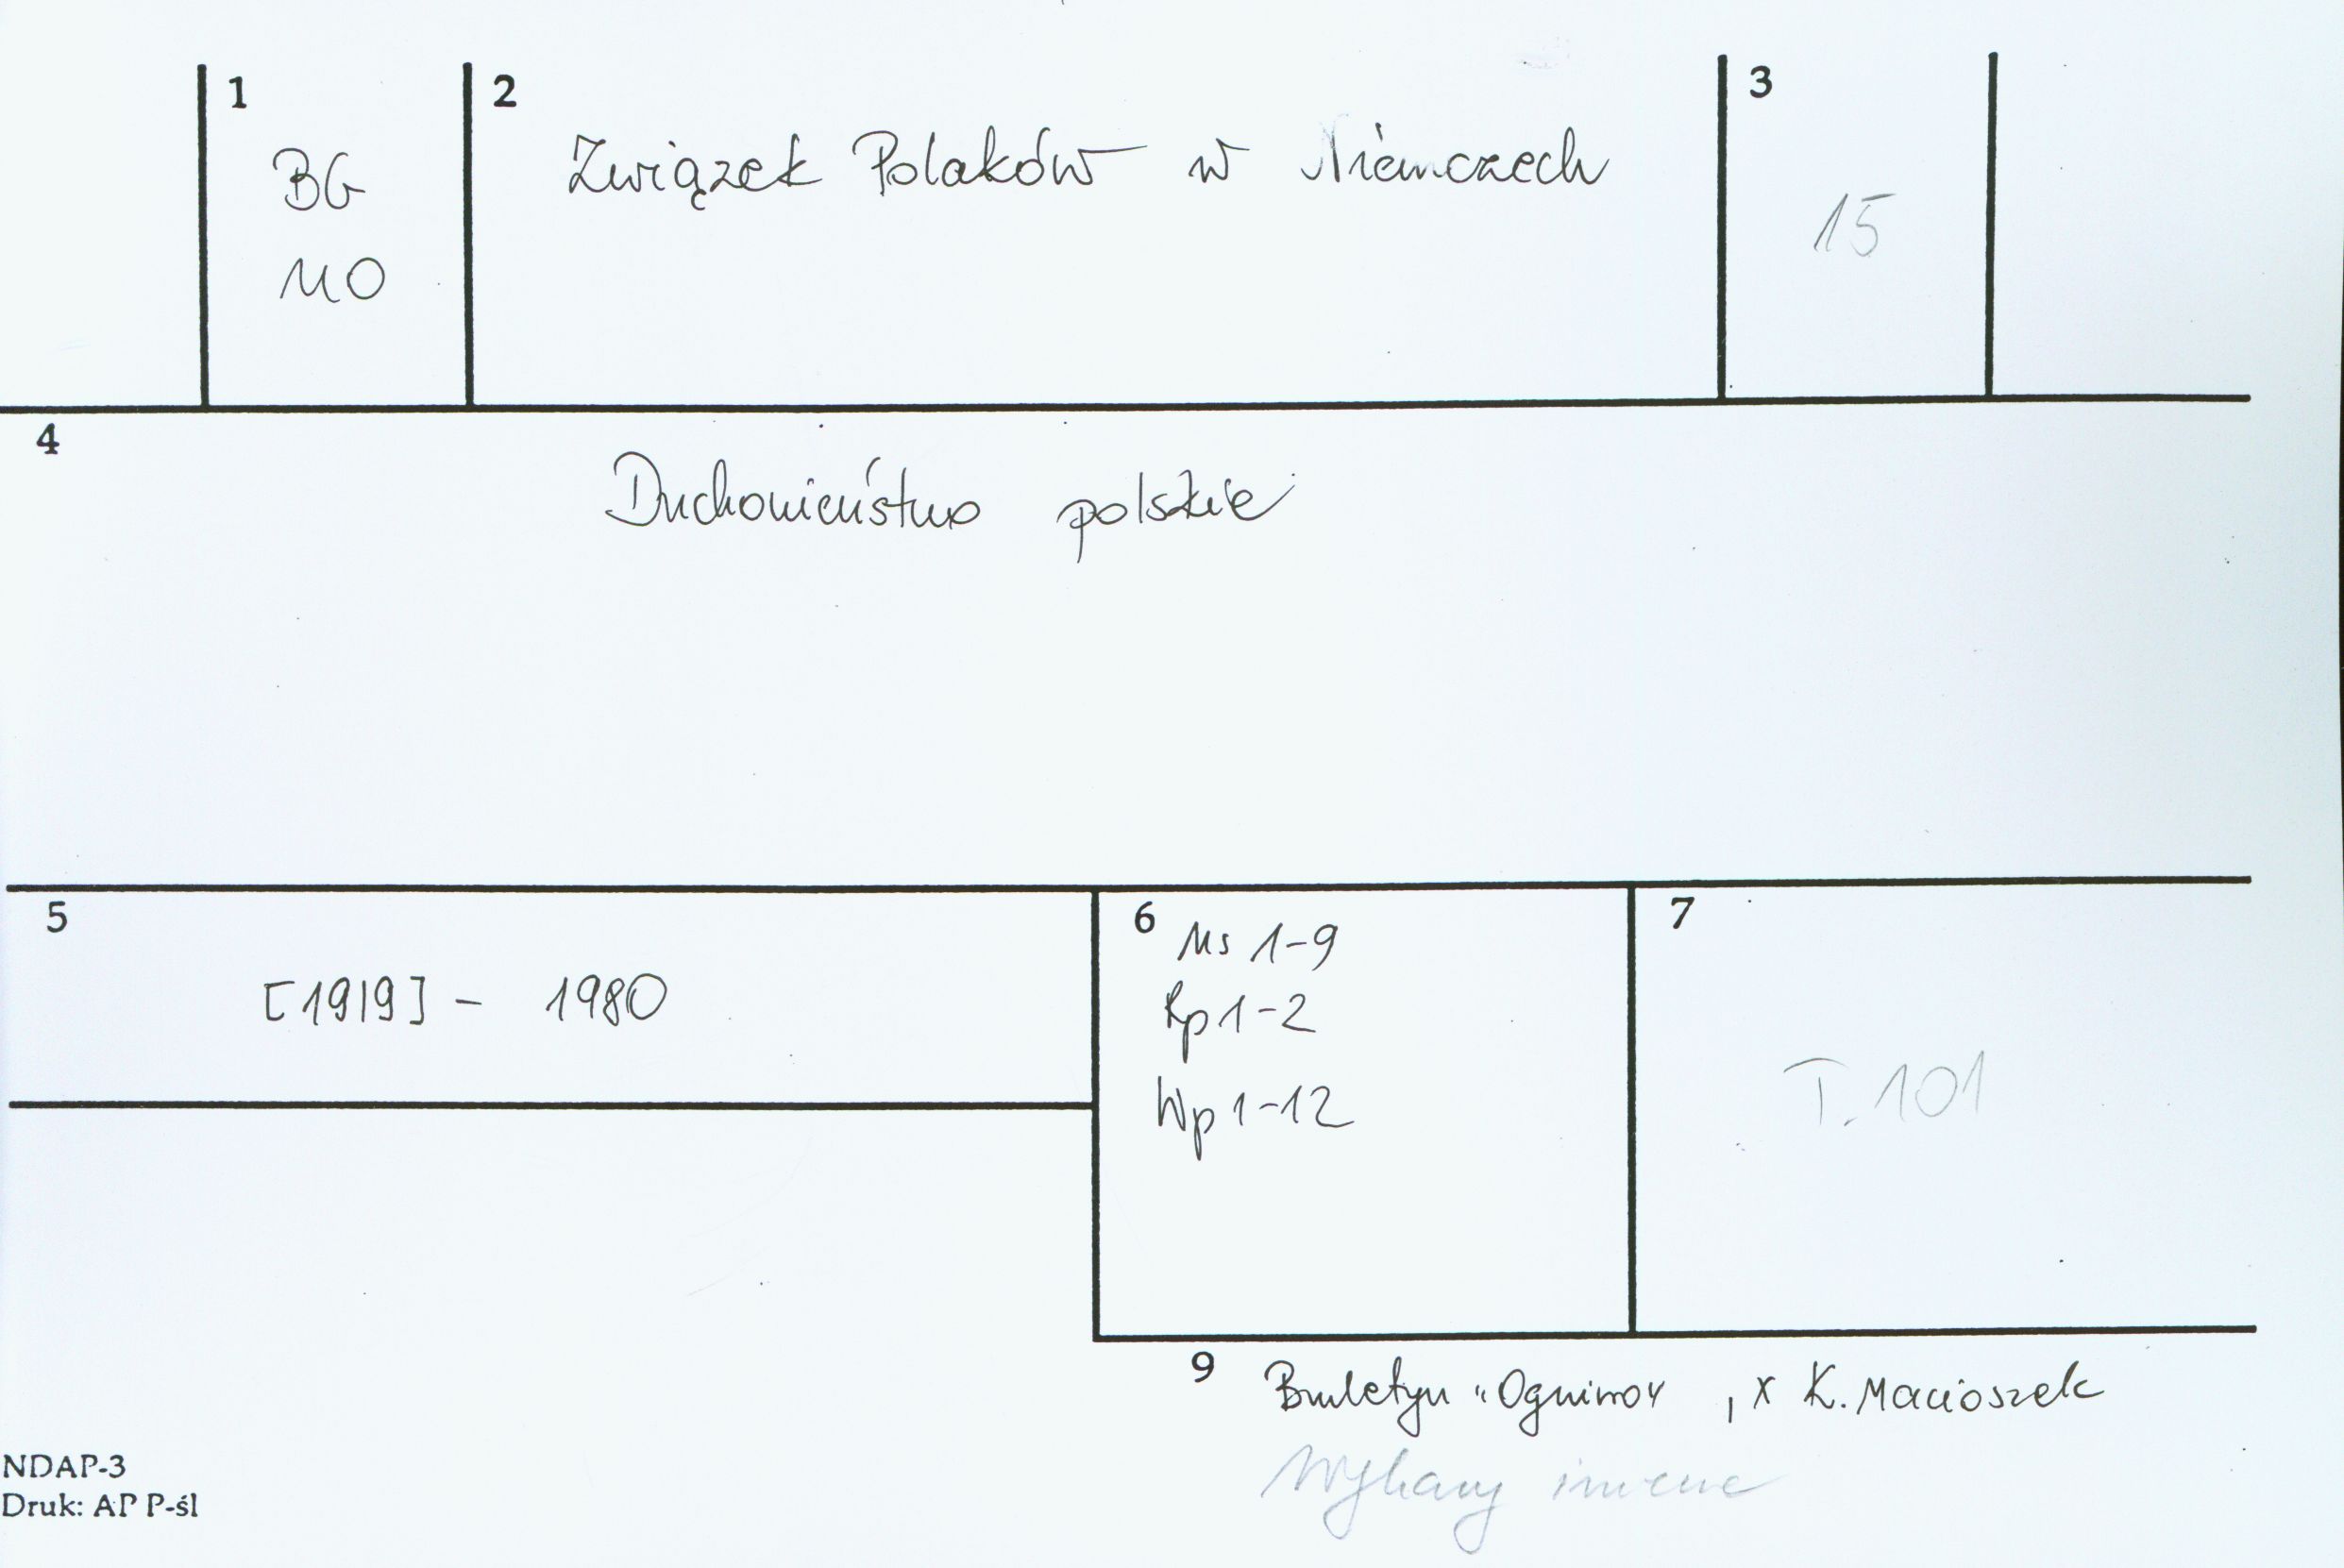 1
BG
MO
2
Związek Polaków w Niemczech
3
15
4
Duchowieństwo polskie
5
[1919] - 1980
6
Ms 1-9
Rp 1-2
Wp 1-12
7
T. 101
9
Biuletyn "Ogniwo", X K. Macioszek
Wykazy imienne
NDAP-3
Druk: AP P-śl